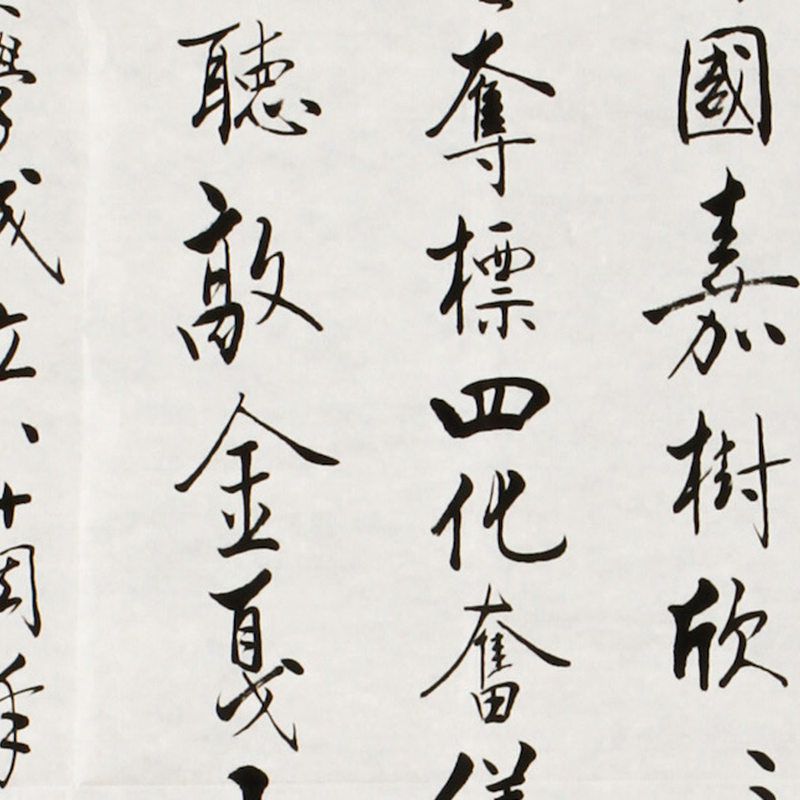 國嘉樹欣
奪標四化奮
聽敲金戛
學成立八十周年